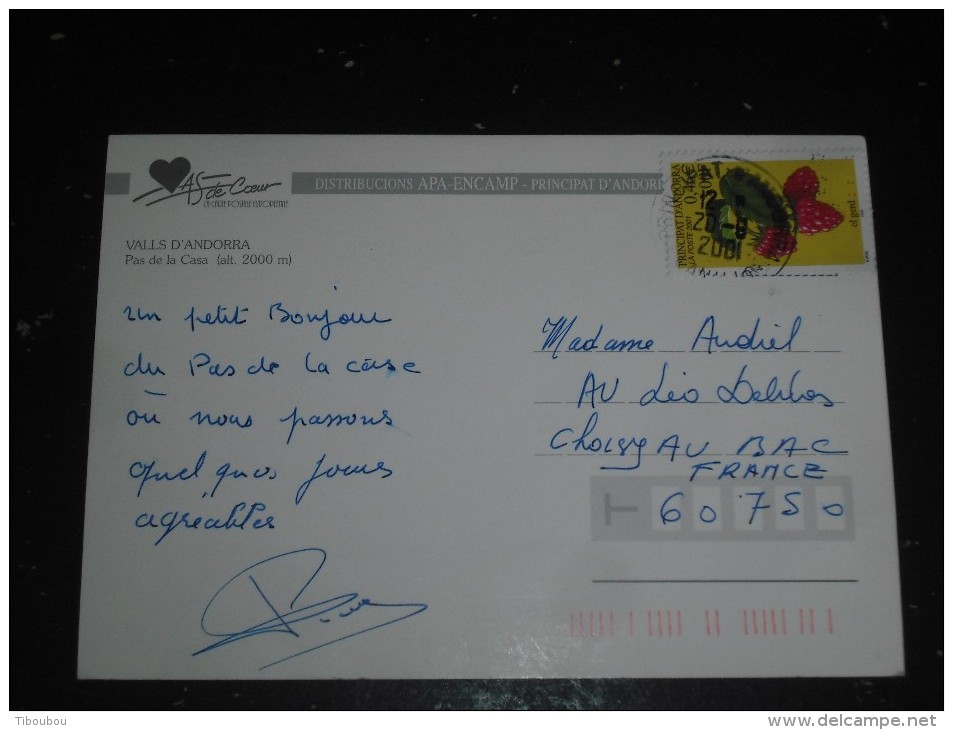 AS de Cœur
LA CARTE POSTALE EUROPEENNE
DISTRIBUCIONS APA-ENCAMP - PRINCIPAT D'ANDORR
VALLS D'ANDORRA
Pas de la Casa (alt. 2000 m)
un petit Bonjour
du Pas de la case
où nous passons
quelques jours
agréables
PRINCIPAT D'ANDORRA
LA POSTE 2001
0,46€
3,00F
el gerd
12
20-8
2001
Madame Audiel
AU Léo Delibes
Choisy AU BAC
FRANCE
60750
Tiboubou
www.delcampe.net